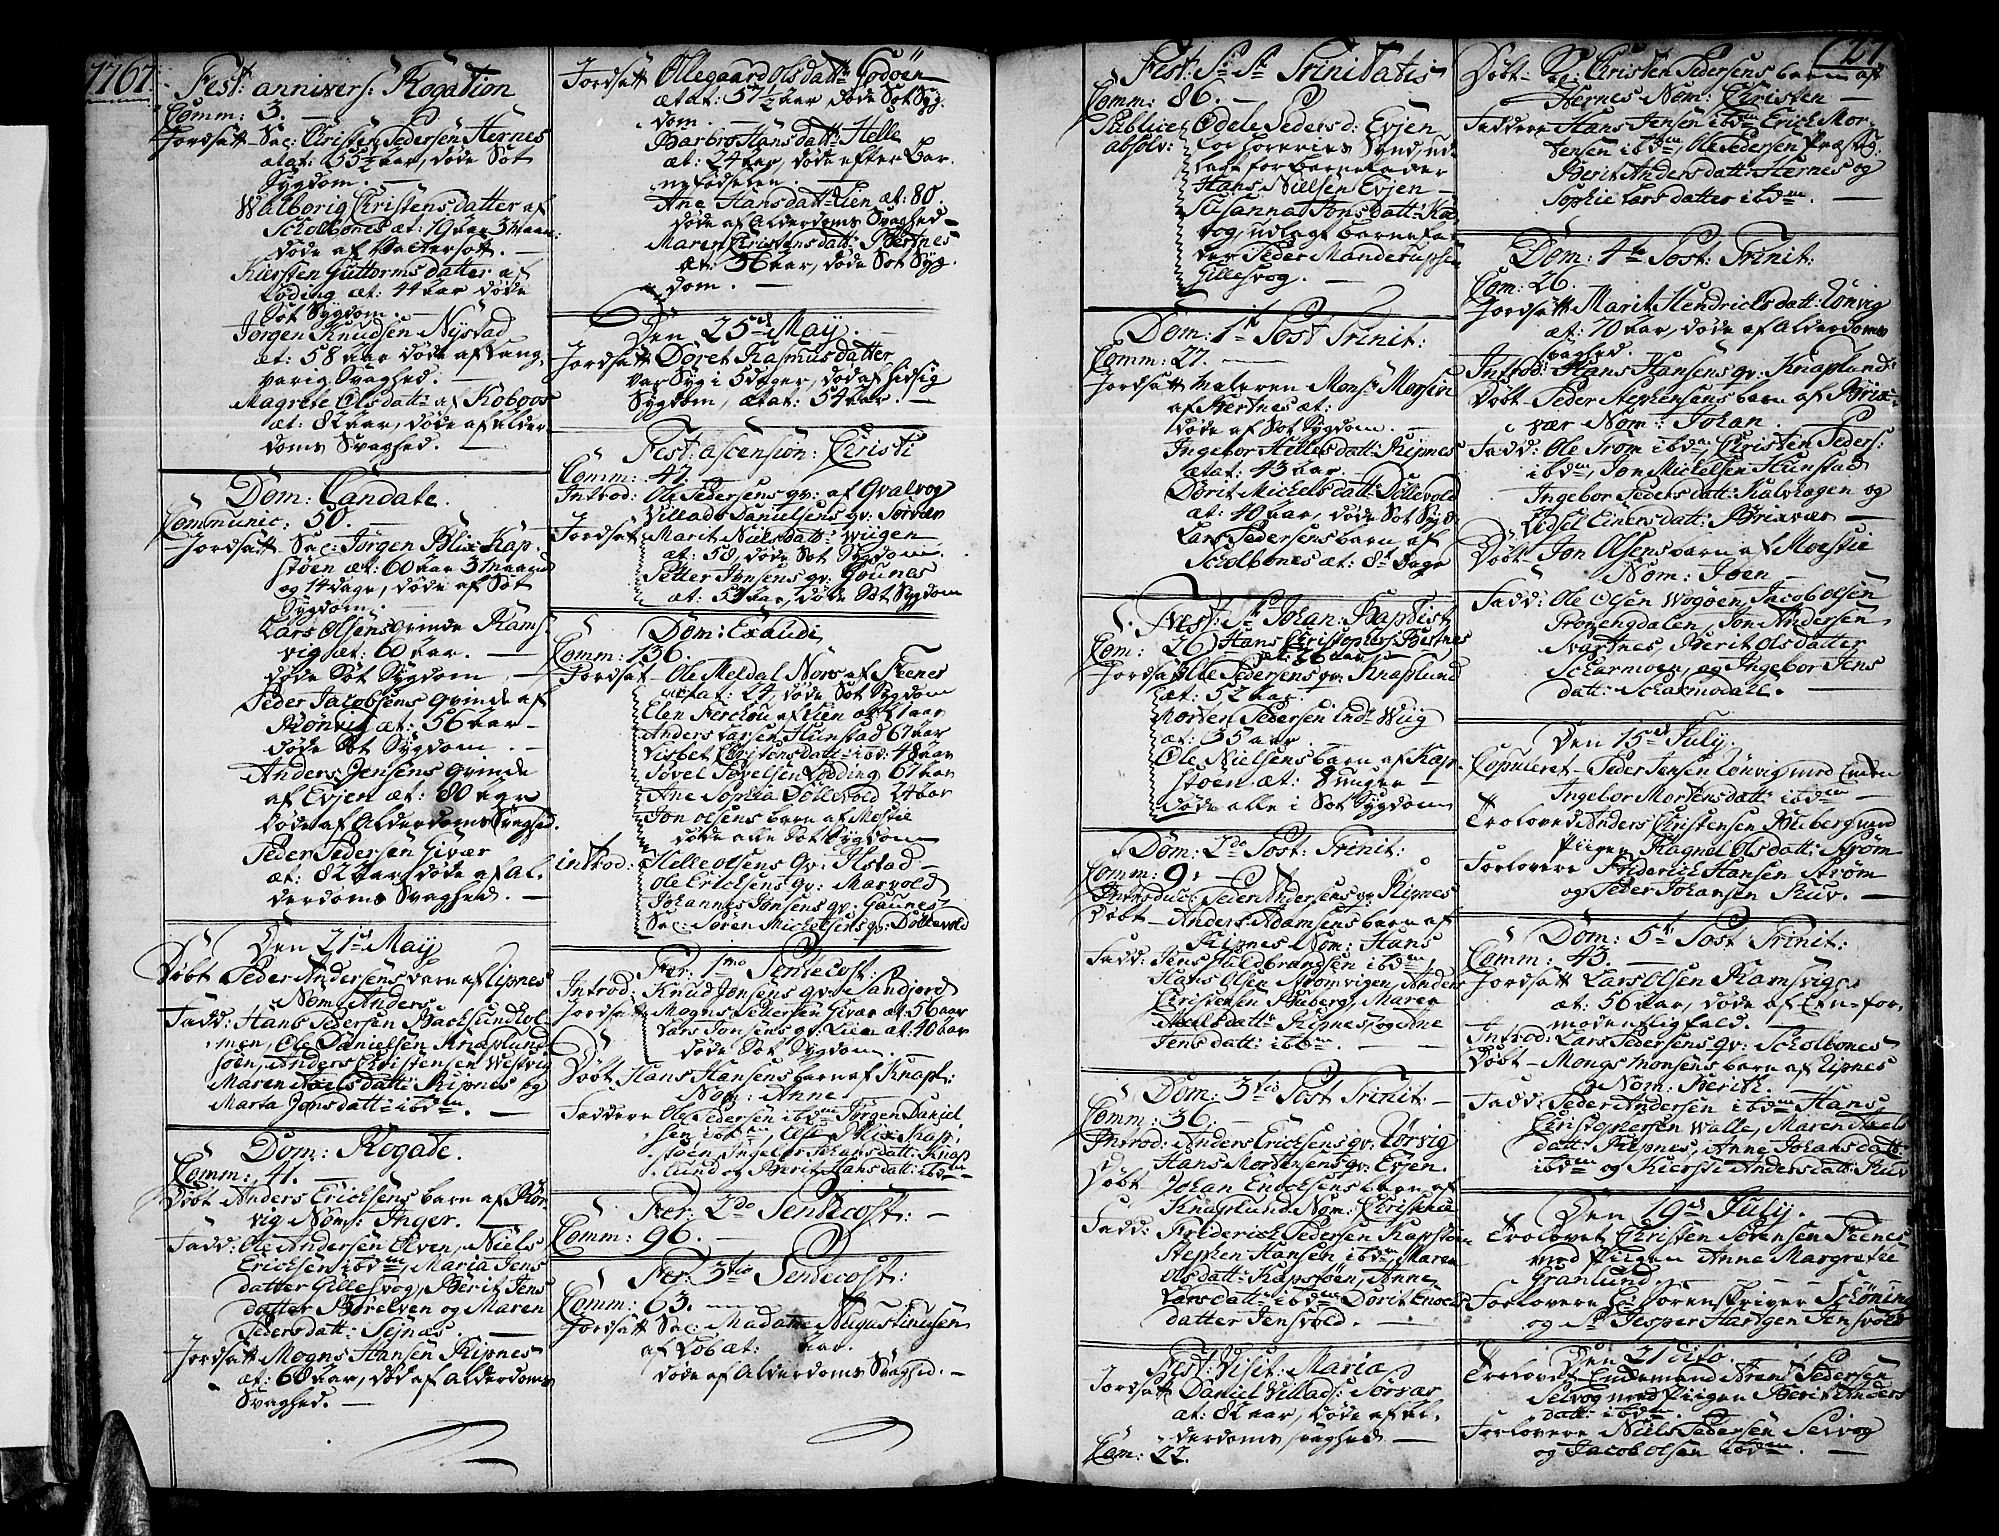 1767.
Fest: annivers: Rogation
Comm: 3. —
Jordsatt Sac: Christen Pedersen Hernes
ætat: 55½ aar, døde Sot
Sygdom. —
Walborig Christensdatter af
Scholbones æt: 19 aar 3 maan:
døde af
Kiersten Guttormsdatter af
Løding æt: 44 aar døde
Sot Sygdom. —
Jørgen Knudsen Nystad
æt: 58 aar døde af Lang,
varig Svaghed. —
Magrete Olsdatt: af Koboos
æt: 82 aar, døde af Alder
doms Svaghed. —
Dom: Cantate.
Communic: 50. —
Jordsatt Sac: Jørgen Blix Kap,
støen æt: 60 aar 3 maaned
og 14 dage, døde af Sot
Sygdom. —
Lars Olsens qvinde Rams,
vig æt: 60 aar. —
døde Sot Sygdom. —
Peder Jacobsens qvinde af
Rønvig æt: 56 aar —
døde Sot Sygdom. —
Anders Jensens qvinde
af Evjen æt: 80 aar
døde af Alderdoms Svaghed.
Peder Pedersen Givær
æt: 82 aar, døde af Al,
derdoms Svaghed. —
Den 21de May
Døbt Peder Andersens barn af Ripnes
Nom: Anders
Fadd: Hans Pedersen Bachsundhol
men, Ole Danielsen Knaplund
søen, Anders Christensen Westvig
Maren Nielsdatt: Ripnes og
Marta Jonsdatt: ibdm. —
Dom: Rogate.
Comm: 41. —
Døbt Anders Ericksens barn af Rør
vig Nom: Inger.
Fadd: Ole Andersen Elven, Niels
Ericksen ibdm, Maria Jens
datter Gillesvog, Berit Jens
datter Børelven og Maren
Pedersdatt: Sejnæs. —
Jordsatt Mogns Hansen Ripnes
æt: 60 aar, død af Alderdoms
Svaghed. —
Jordsatt Ollegaard Olsdatt: Godøen
ætat: 57½ aar døde Sot Syg,
dom. —
Barbro Hansdatt: Helle
æt: 24 aar, døde efter Bar
nefødselen —
Ane Hansdatt: Lien æt: 80.
døde af Alderdoms Svaghed —
Maren Christensdatt: Bertnes
æt: 36 aar, døde Sot Syg,
dom. —
Den 25de May. —
Jordsatt Doret Rasmusdatter
var Syg i 5 dager, død af hidsig
Sygdom, ætat: 54 aar. —
Fest: ascension: Christi
Comm: 47. —
Introd: Ole Pedersens qv: af Qvalvog
Villads Danielsens qv: Sørvær
Jordsatt Marit Nielsdatt: Wiigen
æt: 50, døde Sot Sygdom.
Petter Jonsens qv: Gounes
æt: 50 aar, døde Sot Sygdom
Dom: Exaudi
Comm: 136. —
Jordsat — Ole Meldal Nors af Feenes
ætat: 24, døde Sot Sygdom
Elen Ferchou af Lien æt: 1 aar
Anders Larsen Hunstad 67 aar
Lisbet Christensdatt: ibd: 48 aar
Povel Povelsen Løding 67 aar
Ane Sophia Døllevold 24 aar
Jon Olsens barn af Mestie
døde alle Sot Sygdom
introd: Helle Olsens qv: Ilstad —
Ole Ericksens qv: Marvold
Johannes Jonsens qv: Gounes
Sac: Søren Michelsens qv: Døllevold
Fer: 1mo Pentecost:
Introd: Knud Jonsens qv: Sandjord
Jordsatt Mogns Pettersen Givær æt: 56 aar
Lars Jonsens qv: Lien æt: 40 aar
døde Sot Sygdom. —
Døbt Hans Hansens barn af Knapl:
Nom: Anne
Faddere Ole Pedersen ibdm Jørgen Daniel
sen ibdm, Blix Kap,
støen Ingebor Johansdatt: Knap
lund og Berit Hansdatt: ibdm
Fer: 2do Pentecost: —
Comm: 96. —
Fer: 3tio Pentecost:
Comm: 63. —
Jordsatt Sac: Madame Augustinusen
af Løb æt: aar.
døde af Alderdoms Svaghed. —
Fest: S: S: Trinitatis
Comm: 86. —
Publice Odele Peders d: Evjen
absolv: for horeries Synd, ud
lagt for barnefader
Hans Nielsen Evjen —
Susanna Jonsdatt:
vog, udlagt barnefa
der Peder Manderupsen
Gillesvog. —
Dom: 1te Post Trinit:
Comm: 27. —
Jordsatt Maleren Monsr Morsin
af Bertnes æt:
døde af Sot Sygdom. —
Ingebor Hellesdatt: Ripnes
ætat: 43 aar. —
Dorit Michelsdatt: Døllevold
æt: 40 aar, døde Sot Sygd:
Lars Pedersens barn af
Scholbones æt: 8te Dage
Fest: St Johan: Baptist
Com: 26 Hans Christophers: Bertnes
æt: 36 aar
Jordsatt Ole Pedersens qv: Knaplund
æt: 52 aar. —
Morten Pedersen Ind: Wiig
æt: 35 aar —
Ole Nielsens barn af Kap,
støen æt: 8 uger —
døde alle i Sot Sygdom
Dom: 2do Post: Trinit:
Comm: 9. —
Introduc: Peder Andersens qv: Ripnes
Døbt — Anders Adamsens barn af
Ripnes Nom: Hans
Fadd: Jens Hildbrandsen ibdm,
Hans Olsen Strømvigen, Anders
Christensen Buberg, Maren
Nielsdatt: Ripnes og Ane
Jensdatt: ibdm. —
Dom: 3tio Post Trinit: —
Comm: 36. —
Introd: Anders Ericksens qv: Rørvig
Hans Mortensens qv: Evjen.
Døbt Johan Enochsens barn af
Knaplund Nom: Christena
Fadd: Friderich Pedersen Kapstøen
Stephen Hansen ibdm, Maren
Olsdatt: Kapstøen, Anne
Larsdatt: ibdm Dorit Enochs
datter Jensvold. —
Fest: Visit: Mariæ
Jordsatt Daniel Villads: Sørvær
æt: 82 aar, døde af Al,
derdoms svaghed —
Com: 22.
127.
Døbt — Christen Pedersens barn af
Hernes Nom: Christen —
Faddere Hans Jensen ibdm Erick Mor
tensen ibdm Ole Pedersen
Berit Andersdatt: Hernes og
Sophie Larsdatter ibdm. —
Dom: 4te Post: Trinit:
Com: 26. —
Jordsatt Marit Hendrichsdatt: Lønvig
æt: 70 aar, døde af Alderdoms
svaghed.
Introd: Hans Hansens qv: Knaplund:
Døbt — Peder Stephensens barn af Brix,
vær Nom: Johan.
Fadd: Ole From ibdm, Christen Peders:
ibdm, Jon Mickelsen Hunstad
Ingebor Pedersdatt: Kalvhagen og
Lidsel Einersdatt: Brixvær —
Døbt — Jon Olsens barn af Moestie
Nom: Joen —
Fadd: Ole Olsen Wogøen, Jacob Olsen
Tronengdalen, Jon Andersen
Svartnes, Berit Olsdatter
Scharmoen, og Ingebor Jens
datt: Scharmodall. —
Den 15de July.
Copuleret — Peder Jensen Lønvig med Enken
Ingebor Mortensdatt: ibdm —
Trolovet Anders Christensen Buberg med
Piigen Ragnel Olsdatt: Strøm
Forlovere Friderich Hansen Strøm
og Peder Johansen Ruv. —
Dom: 5te Post Trinit:
Comm: 43. —
Jordsatt Lars Olsen Ramsvig,
æt: 56 aar, døde af Et u-for,
modentlig fald. —
Introd: Lars Pedersens qv: Scholbones
Døbt — Mongs Monsens barn af Ripnes
Nom: Berith.
Fadd: Peder Andersen ibdm Hans
Christophersen Walle, Maren Niels
datt: Ripnes, Anne Johansdatt:
ibdm og Kiersti Andersdatt: Ruv
Den 19de July.
Trolovet Christen Sørensen Feenes
med Piigen Anne Margretie
Granlund.
Forlovere Sr Sorenskriver Schøning
og Sr Jesper Hartgen Jensvold
Den 21 dito.
Trolovet — Enkemand Arent Pedersen
Selvog med Piigen Berit Anders
datt: ibdm.
Forlovere Niels Pedersen Seivog
og Jacob Olsen ibdm. —